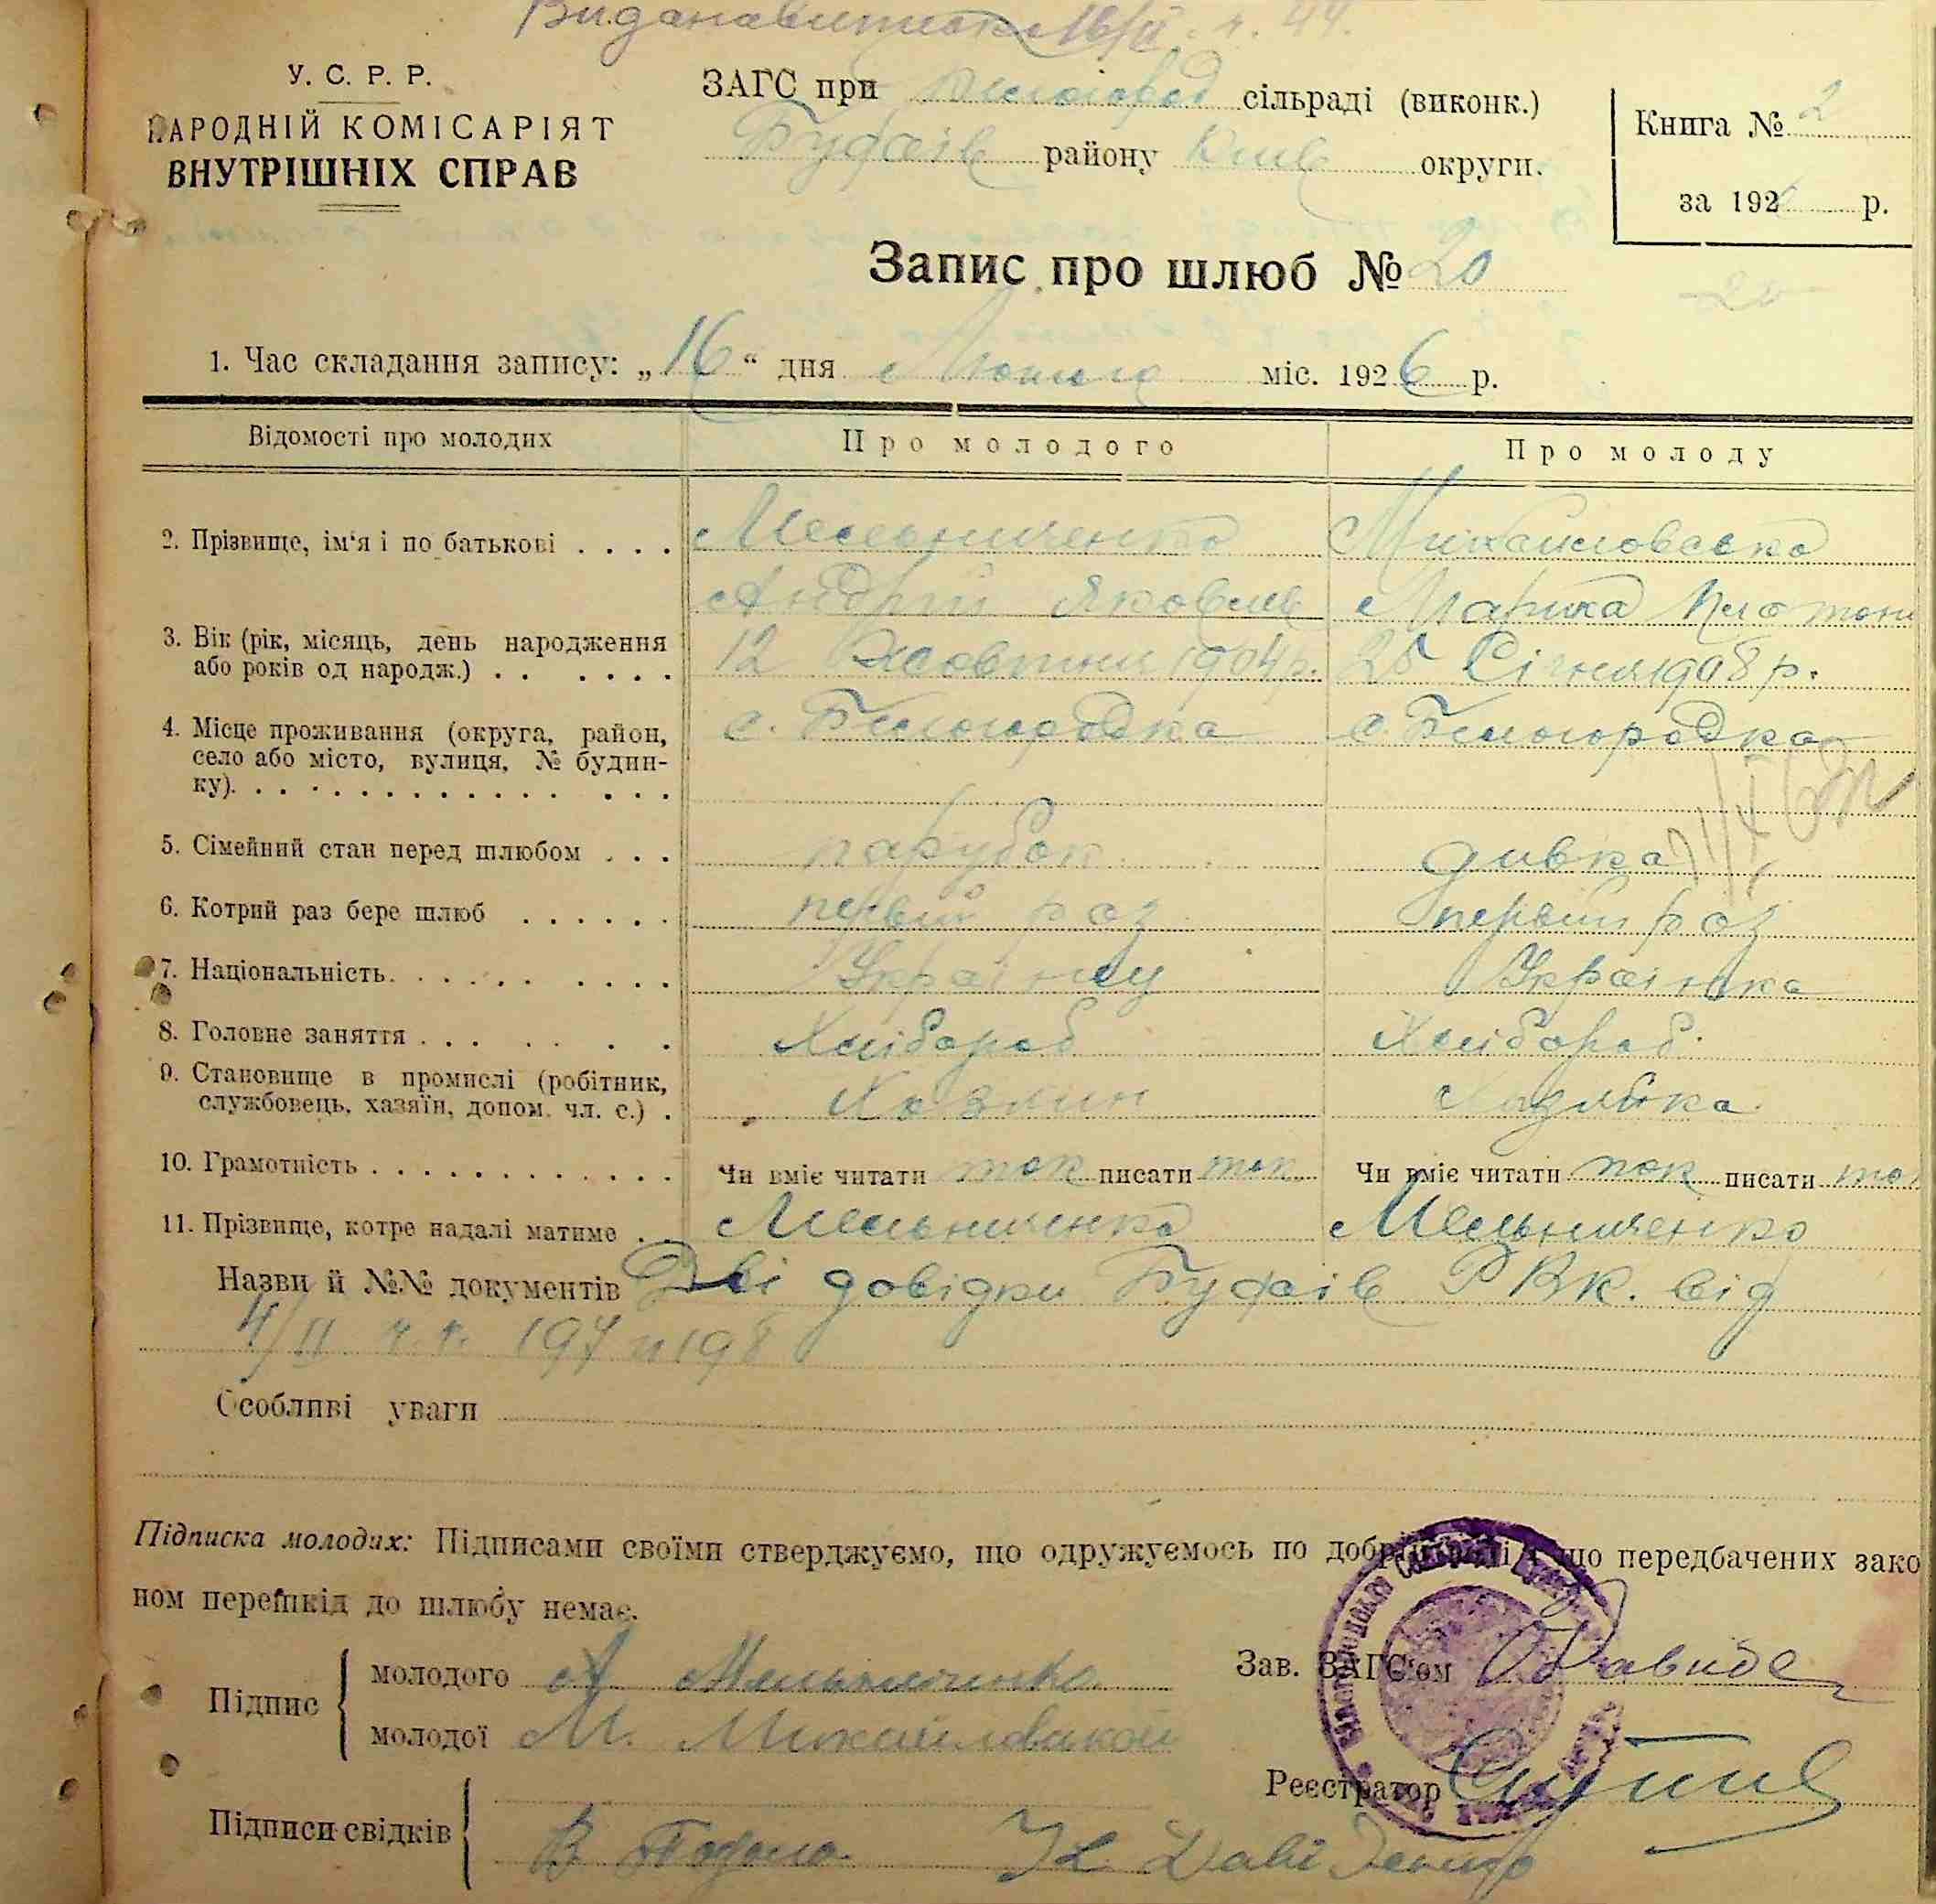 У. С. Р. Р.
НАРОДНІЙ КОМІСАРІЯТ
ВНУТРІШНІХ СПРАВ
ЗАГС при Білогород сільраді (виконк.)
Будаїв району Київ округи.
Книга № 2
за 1926 р.
Запис про шлюб № 20
20
1. Час складання запису: „16“ дня Лютого міс. 1926 р.
Відомості про молодих Про молодого Про молоду
2. Прізвище, ім'я і по батькові . . . . Мельниченко Михайловска
Андрій Яковлев Марика Платони
3. Вік (рік, місяць, день народження 12 Жовтня 1904 р. 25 Січня 1908 р.
або років од народж.) . . . . . .
4. Місце проживання (округа, район, с. Білогородка с. Білогородка
село або місто, вулиця, № будин-
ку). . . . . . . . . . . . . . . .
5. Сімейний стан перед шлюбом . . . парубок дивка
6. Котрий раз бере шлюб . . . . . . первий раз первий раз
7. Національність. . . . . . . . . . Українец Українка
8. Головне заняття . . . . . . . Хлібороб Хлібороб
9. Становище в промислі (робітник,
службовець, хазяїн, допом. чл. с.) . Хозяин Хазяйка
10. Грамотність . . . . . . . . . . . . Чи вміє читати так писати так Чи вміє читати так писати так
11. Прізвище, котре надалі матиме . . Мельниченко Мельниченко
Назви й №№ документів Дві довідки Будаїв РВК. від
4/II ч.ч. 197 и 198
Особливі уваги
Підписка молодих: Підписами своїми стверджуємо, що одружуємось по добрій волі і що передбачених зако
ном перешкід до шлюбу немає.
Підпис
молодого А Мельниченко
молодої М. Михайловской
Зав. ЗАГС'ом
Реєстратор
Підписи свідків
В